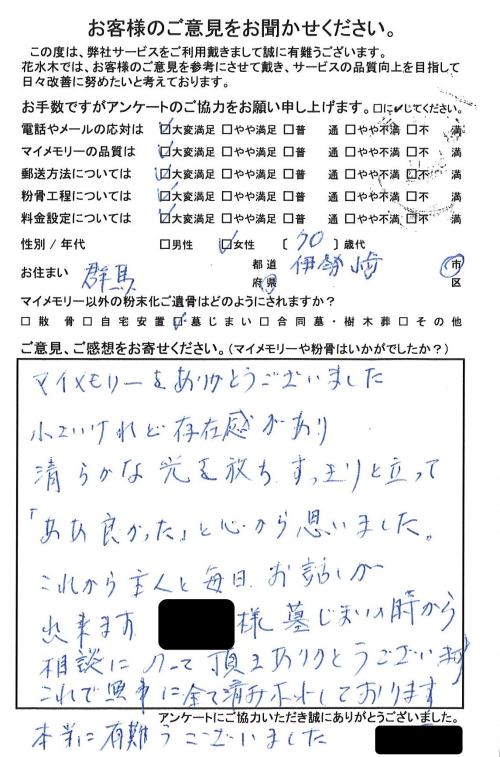 お客様のご意見をお聞かせください。
この度は、弊社サービスをご利用戴きまして誠に有難うございます。
花水木では、お客様のご意見を参考にさせて戴き、サービスの品質向上を目指して
日々改善に努めたいと考えております。
お手数ですがアンケートのご協力をお願い申し上げます。□に✓してください。
電話やメールの応対は ☑大変満足 □やや満足 □普 通 □やや不満 □不 満
マイメモリーの品質は ☑大変満足 □やや満足 □普 通 □やや不満 □不 満
郵送方法については ☑大変満足 □やや満足 □普 通 □やや不満 □不 満
粉骨工程については ☑大変満足 □やや満足 □普 通 □やや不満 □不 満
料金設定については ☑大変満足 □やや満足 □普 通 □やや不満 □不 満
性別 / 年代 □男性 ☑女性 〔 70 〕歳代
お住まい 群馬 都 道 府 県 伊勢崎 市 区
マイメモリー以外の粉末化ご遺骨はどのようにされますか?
□散 骨 □自宅安置 ☑墓じまい □合同墓・樹木葬 □その他
ご意見、ご感想をお寄せください。(マイメモリーや粉骨はいかがでしたか?)
マイメモリーをありがとうございました
小さいけれど存在感があり
清らかな光を放ち すっきりと立って
「ああ良かった」と心から思いました。
これから主人と毎日 お話しが
出来ます 様 墓じまいの時から
相談にのって頂きありがとうございます
これで無事に全て済みホットしております
アンケートにご協力いただき誠にありがとうございました。
本当に有難うございました